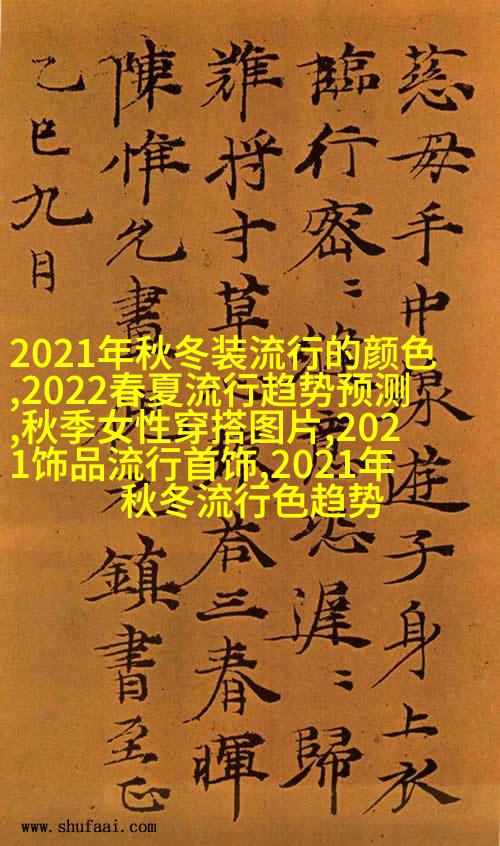 慈母手中線遊子身上衣
臨行密〻縫恐遲〻歸
誰將寸草荅三春暉
陳惟允書鎮書至正
乙巳九月
2021年秋冬装流行的颜色
,2022春夏流行趋势预测
,秋季女性穿搭图片,202
1饰品流行首饰,2021年
秋冬流行色趋势
www.shufaai.com